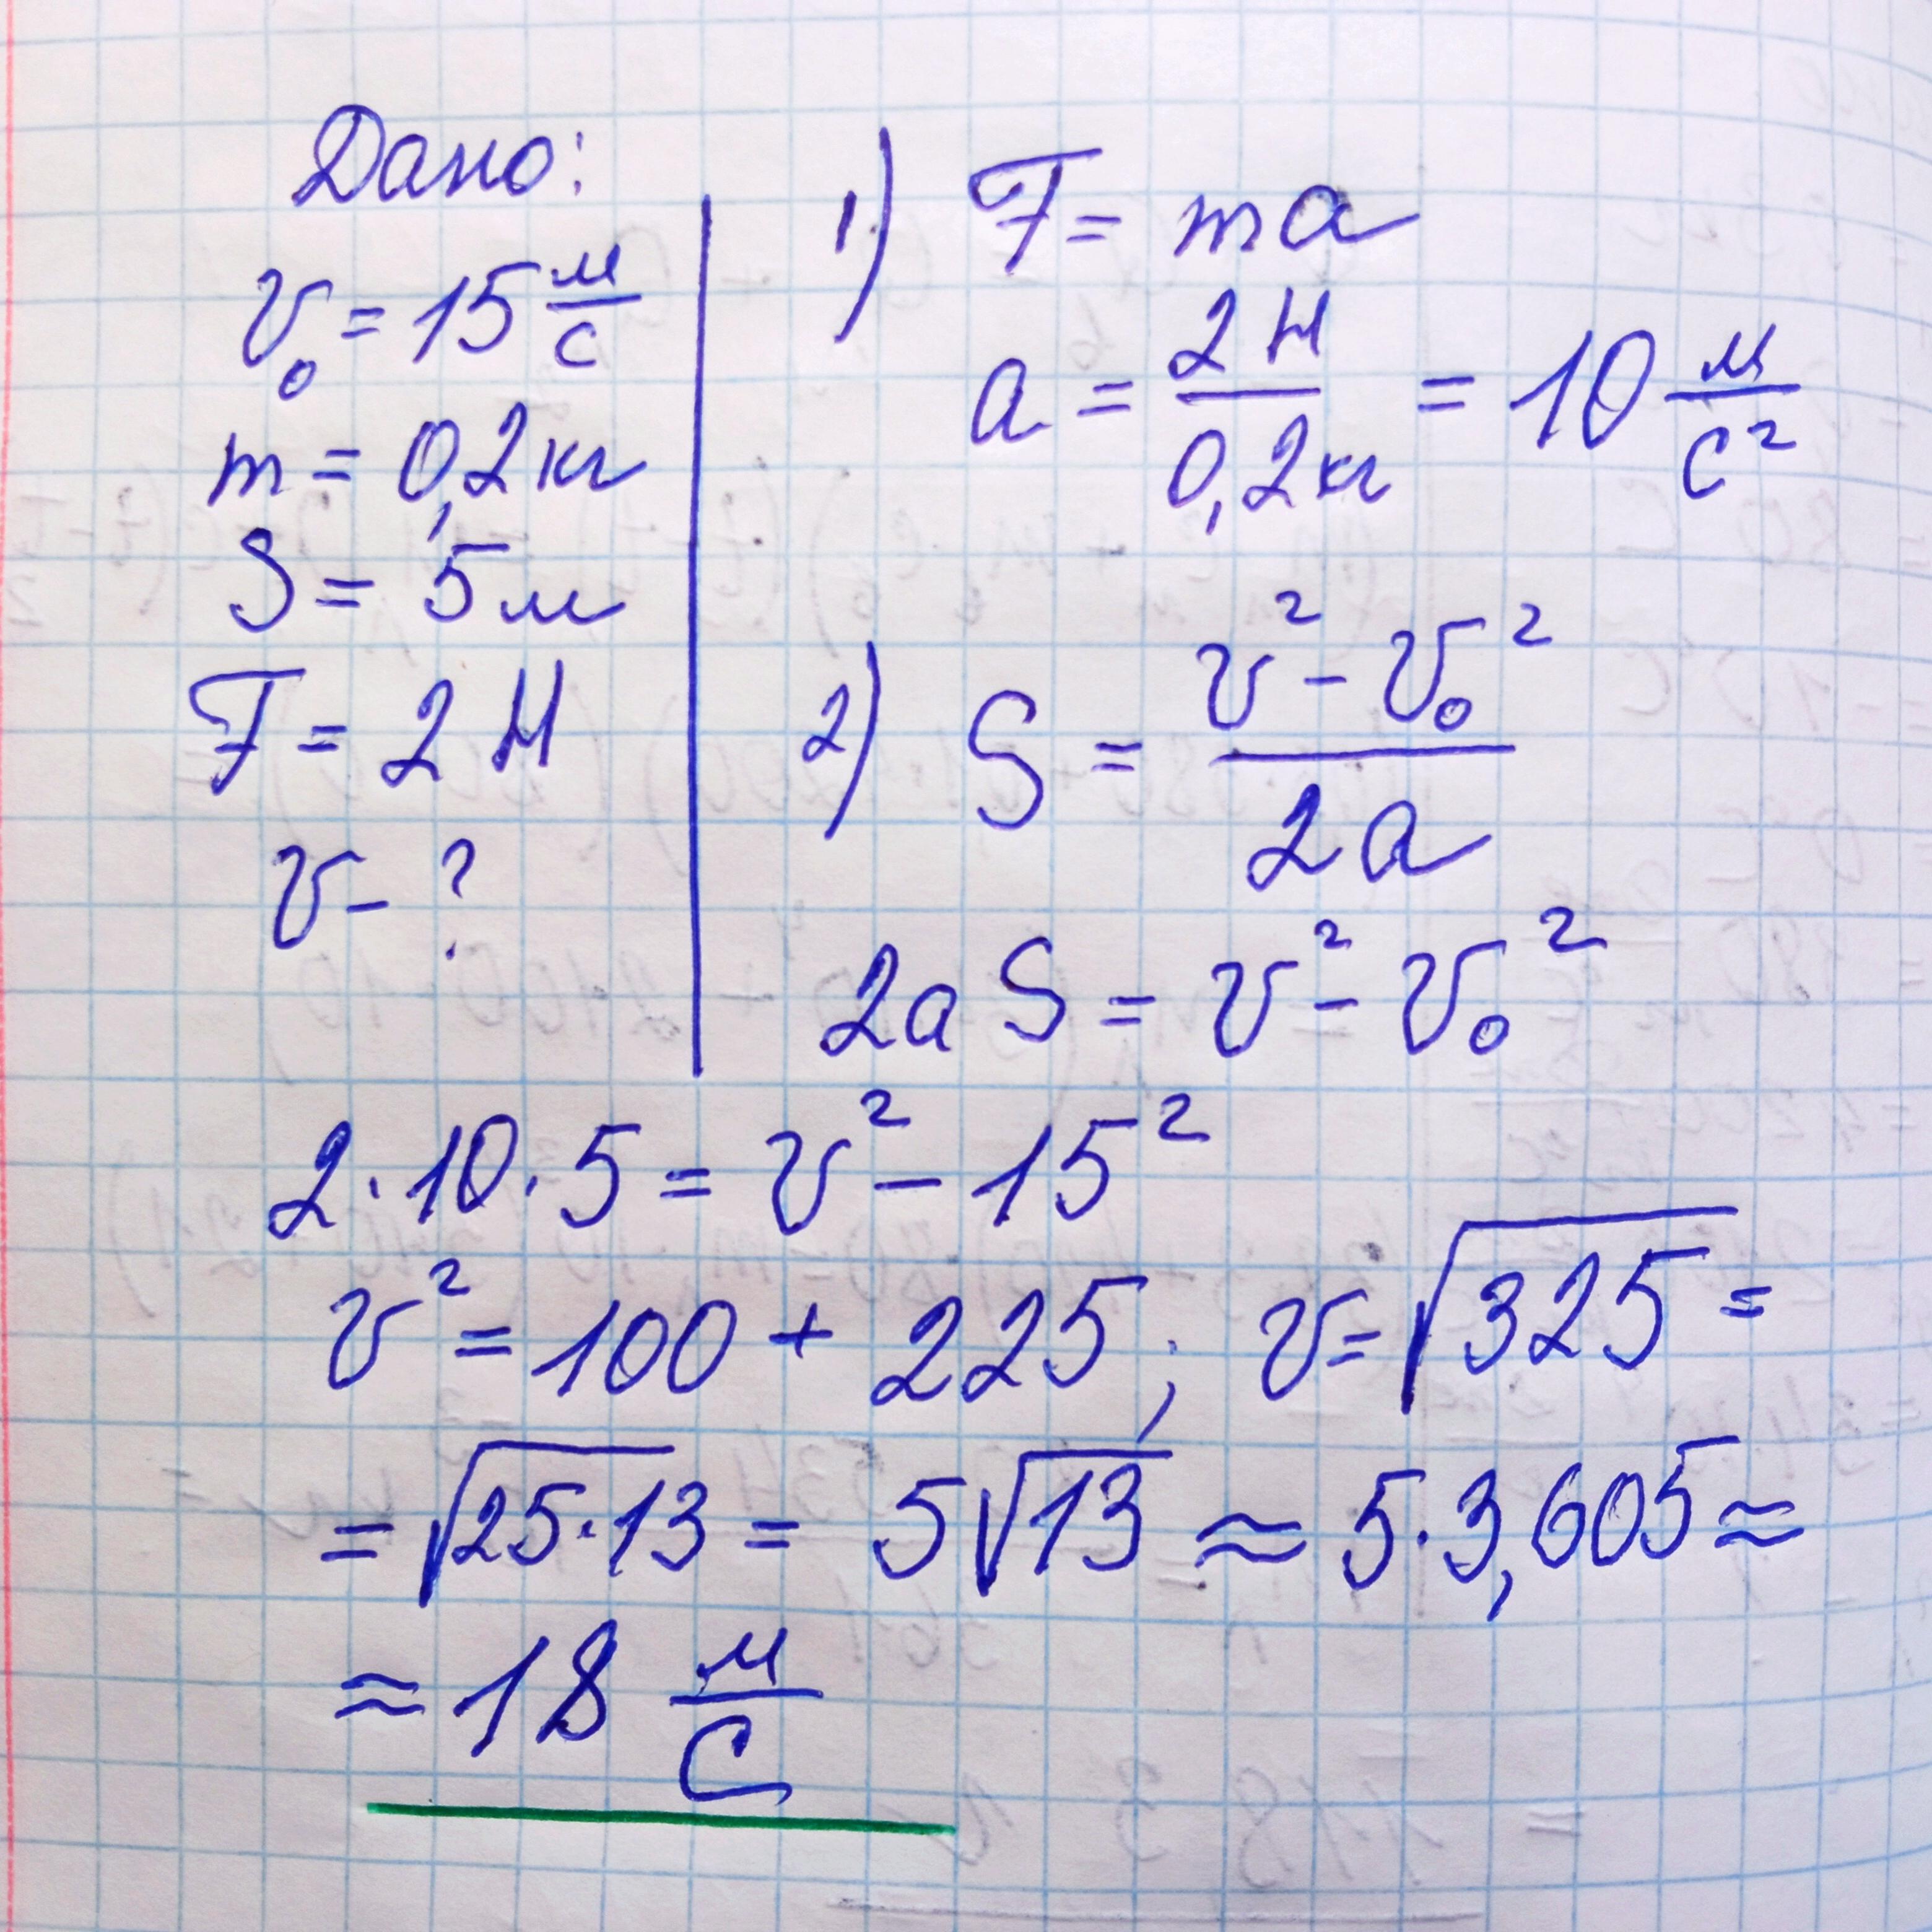 Дано:
v₀ = 15 м/с
m = 0,2 кг
S = 5 м
F = 2 Н
v - ?
1) F = ma
a = 2 Н / 0,2 кг = 10 м/с²
2) S = (v² - v₀²) / 2a
2aS = v² - v₀²
2·10·5 = v² - 15²
v² = 100 + 225; v = √325 =
= √25·13 = 5√13 ≈ 5·3,605 ≈
≈ 18 м/с